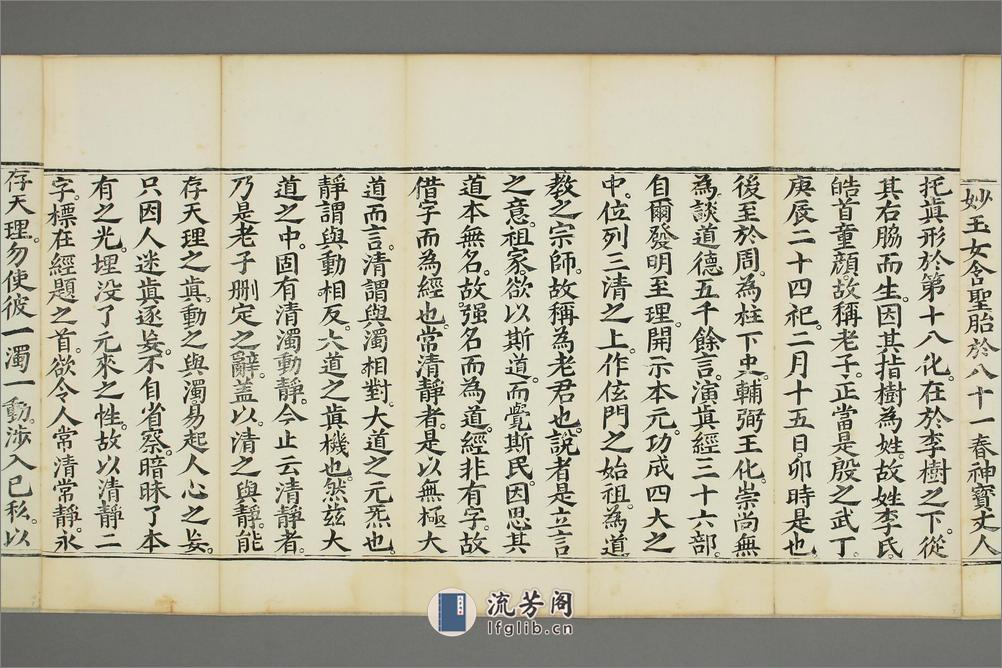 妙玉女含聖胎於八十一春神寶丈人
托眞形於第十八化。在於李樹之下。從
其右脇而生。因其指樹為姓。故姓李氏。
皓首童顔。故稱老子。正當是殷之武丁
庚辰二十四祀。二月十五日。卯時是也
後至於周。為柱下史。輔弼王化。崇尚無
為。談道德五千餘言。演眞經三十六部。
自爾發明至理。開示本元。功成四大之
中。位列三清之上。作伭門之始祖。為道
教之宗師。故稱為老君也。說者是立言
之意。祖家。欲以斯道。而覺斯民。因思其
道本無名。故强名而為道。經非有字。故
借字而為經也。常清靜者。是以無極大
道而言。清謂與濁相對。大道之元炁也
靜謂與動相反。大道之眞機也。然茲大
道之中。固有清濁動靜。今止云清靜者。
乃是老子刪定之辭。蓋以。清之與靜。能
存天理之眞。動之與濁。易起人心之妄。
只因人迷眞逐妄。不自省察。暗昧了本
有之光。埋没了元來之性。故以清靜二
字。標在經題之首。欲令人常清常靜。永
存天理。勿使彼一濁一動。涉入已私。以
流芳阁
lfglib.cn